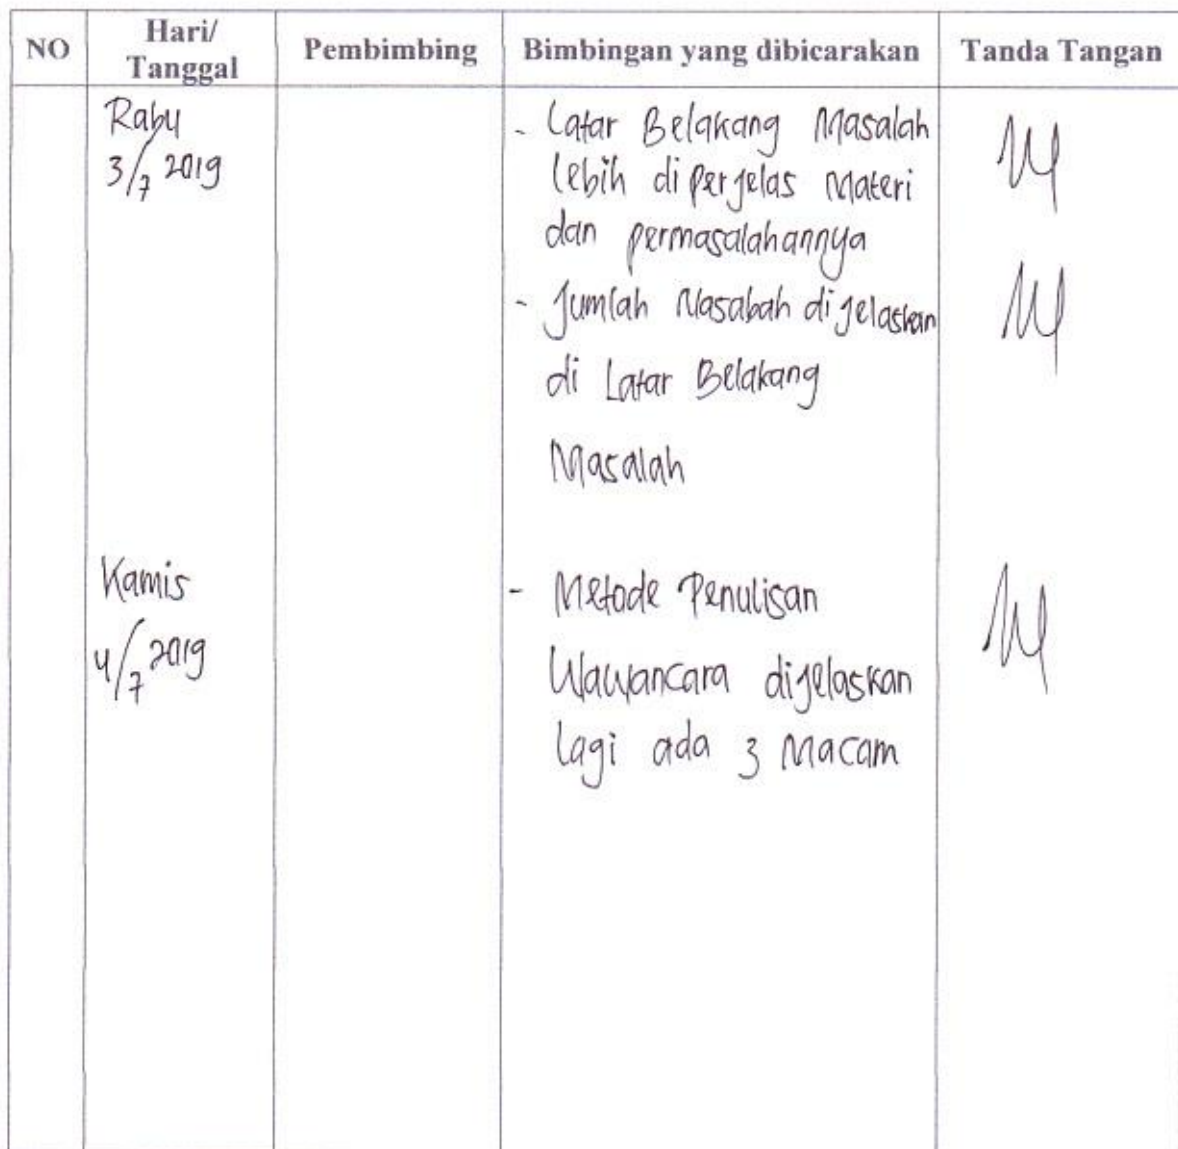 NO Hari/ Tanggal Pembimbing Bimbingan yang dibicarakan Tanda Tangan
Rabu - Latar Belakang Masalah
3/7 2019 lebih diperjelas Materi
dan permasalahannya
- Jumlah Nasabah dijelaskan
di Latar Belakang
Masalah
Kamis - Metode Penulisan
4/7 2019 Wawancara dijelaskan
lagi ada 3 Macam